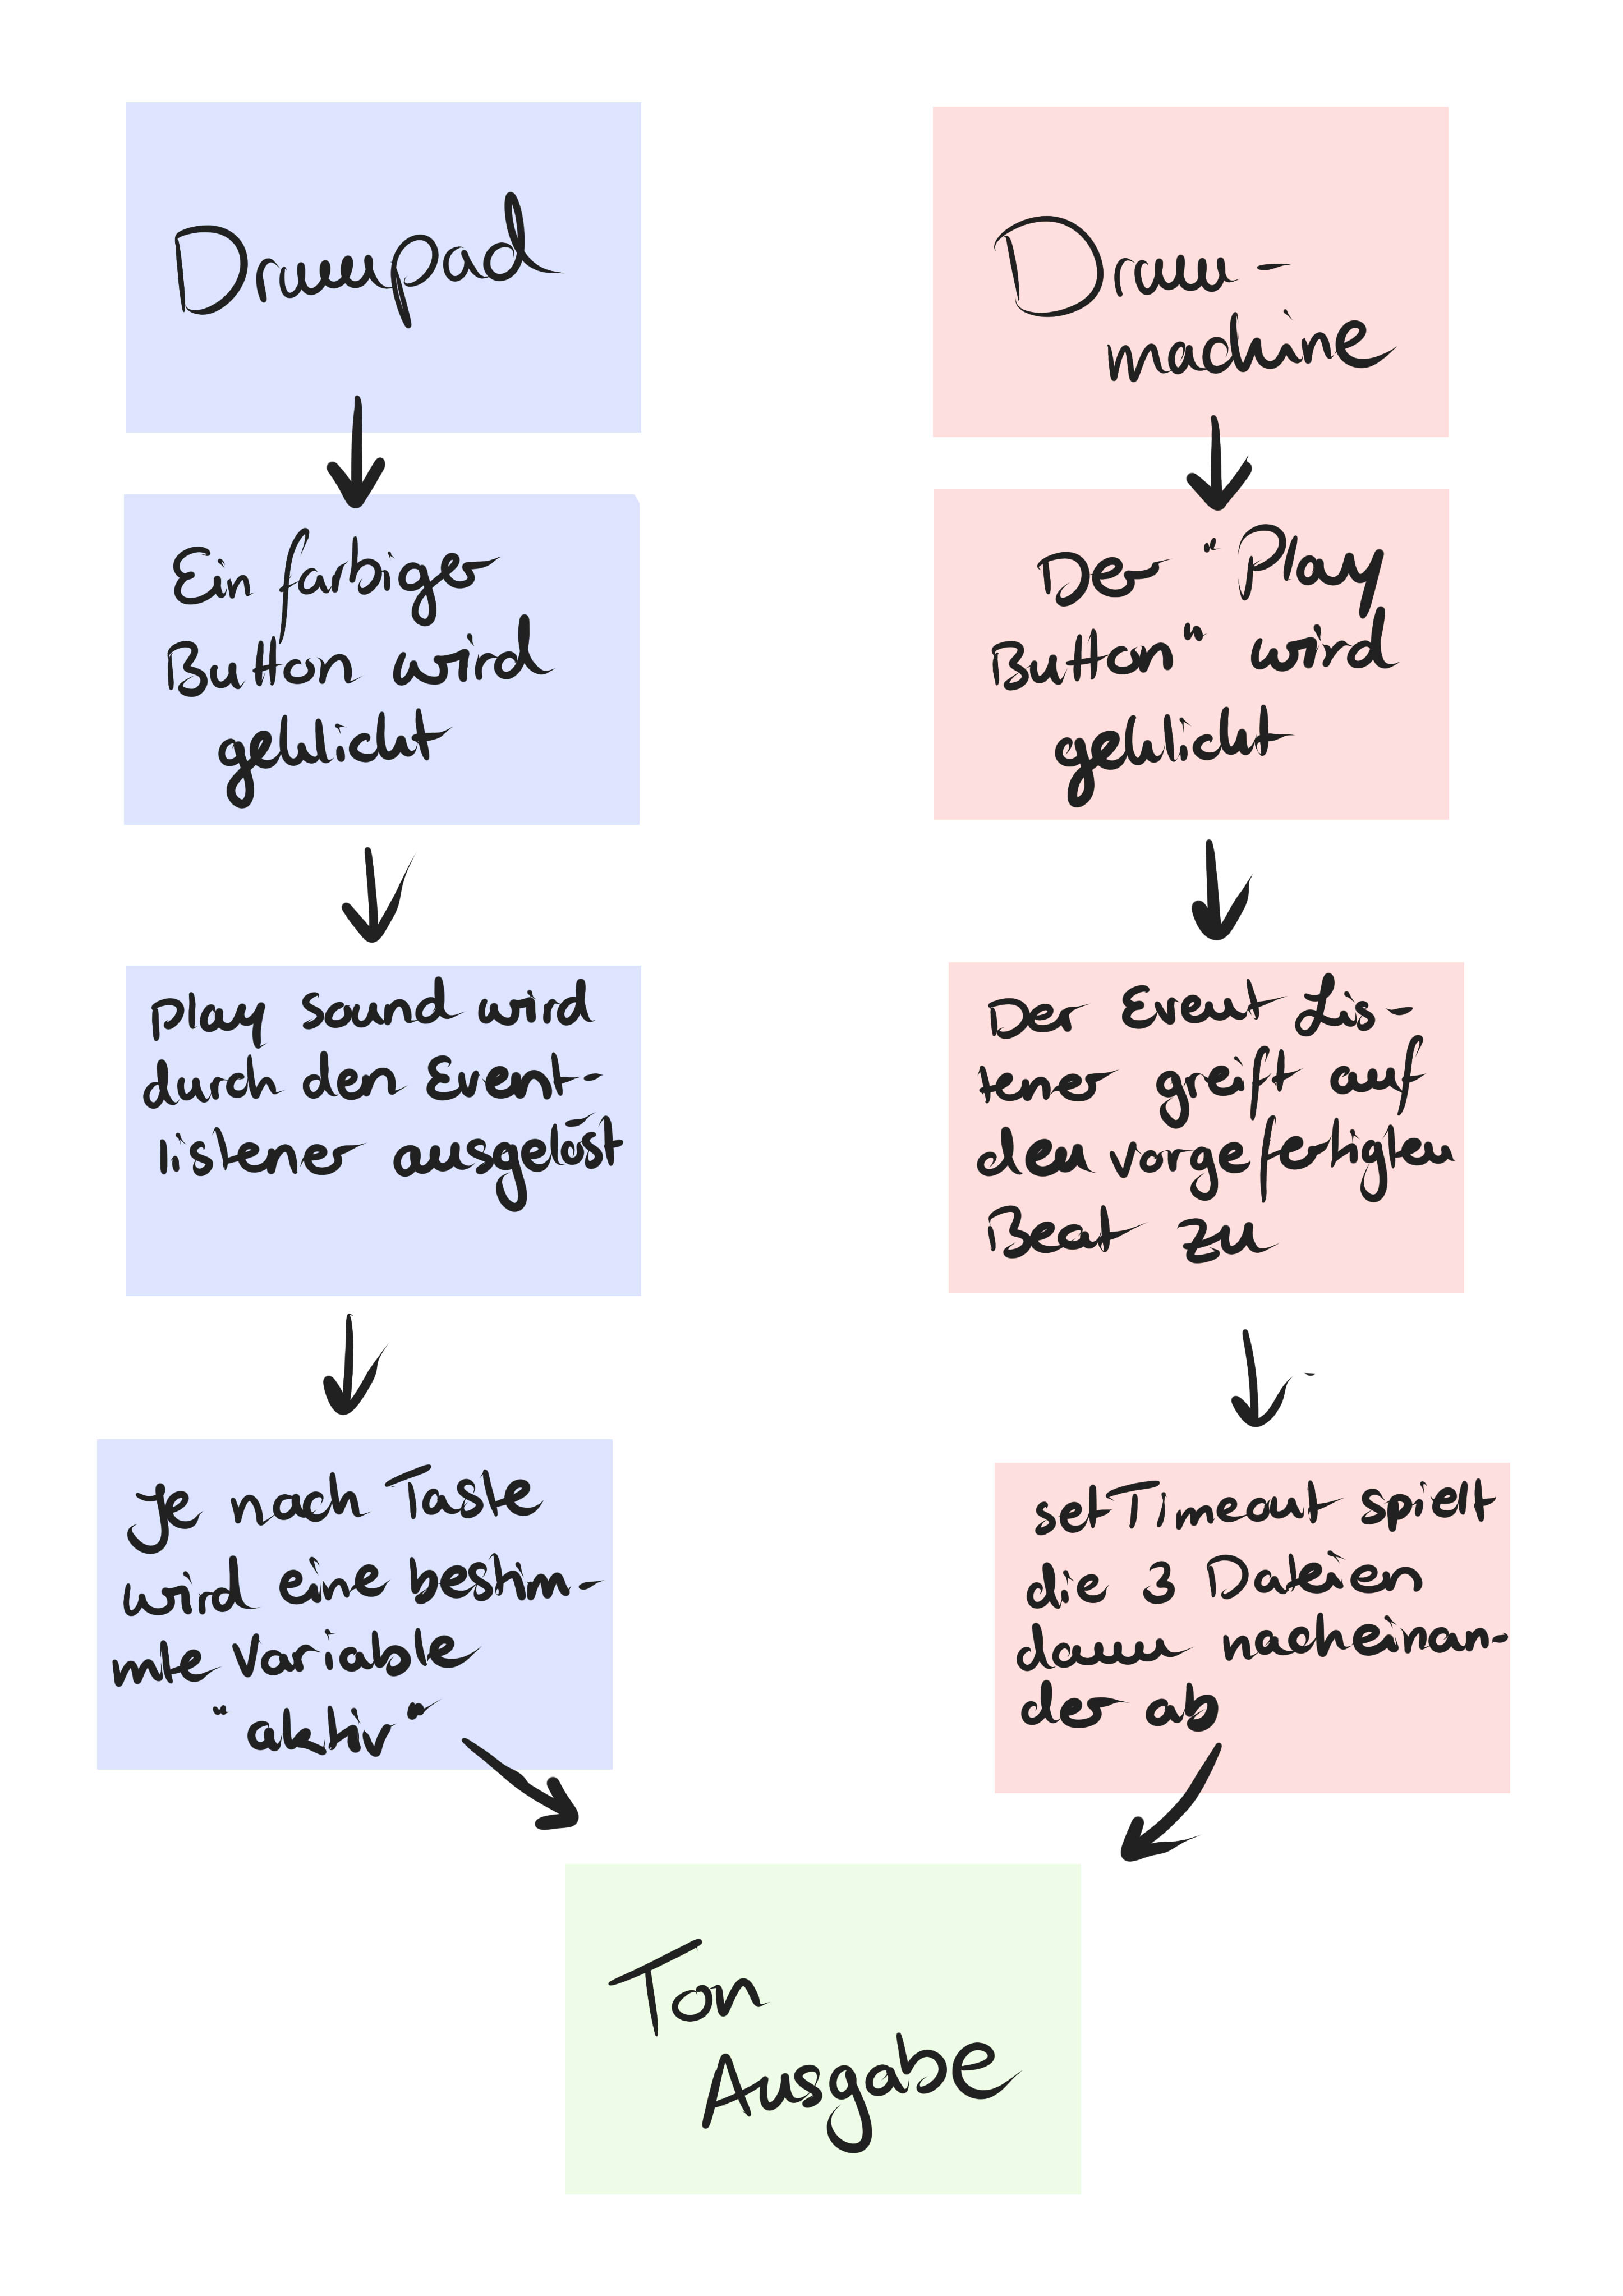 Drumpad
Ein farbiger
Button wird
geklickt
Play Sound wird
durch den Event-
listener ausgelöst
Je nach Taste
wird eine bestim-
mte Variable
"aktiv"
Drum-
machine
Der "Play
Button" wird
geklickt
Der Event Lis-
tener greift auf
den vorgefertigten
Beat zu
setTimeout spielt
die 3 Dateien
dann nacheinan-
der ab
Ton
Ausgabe